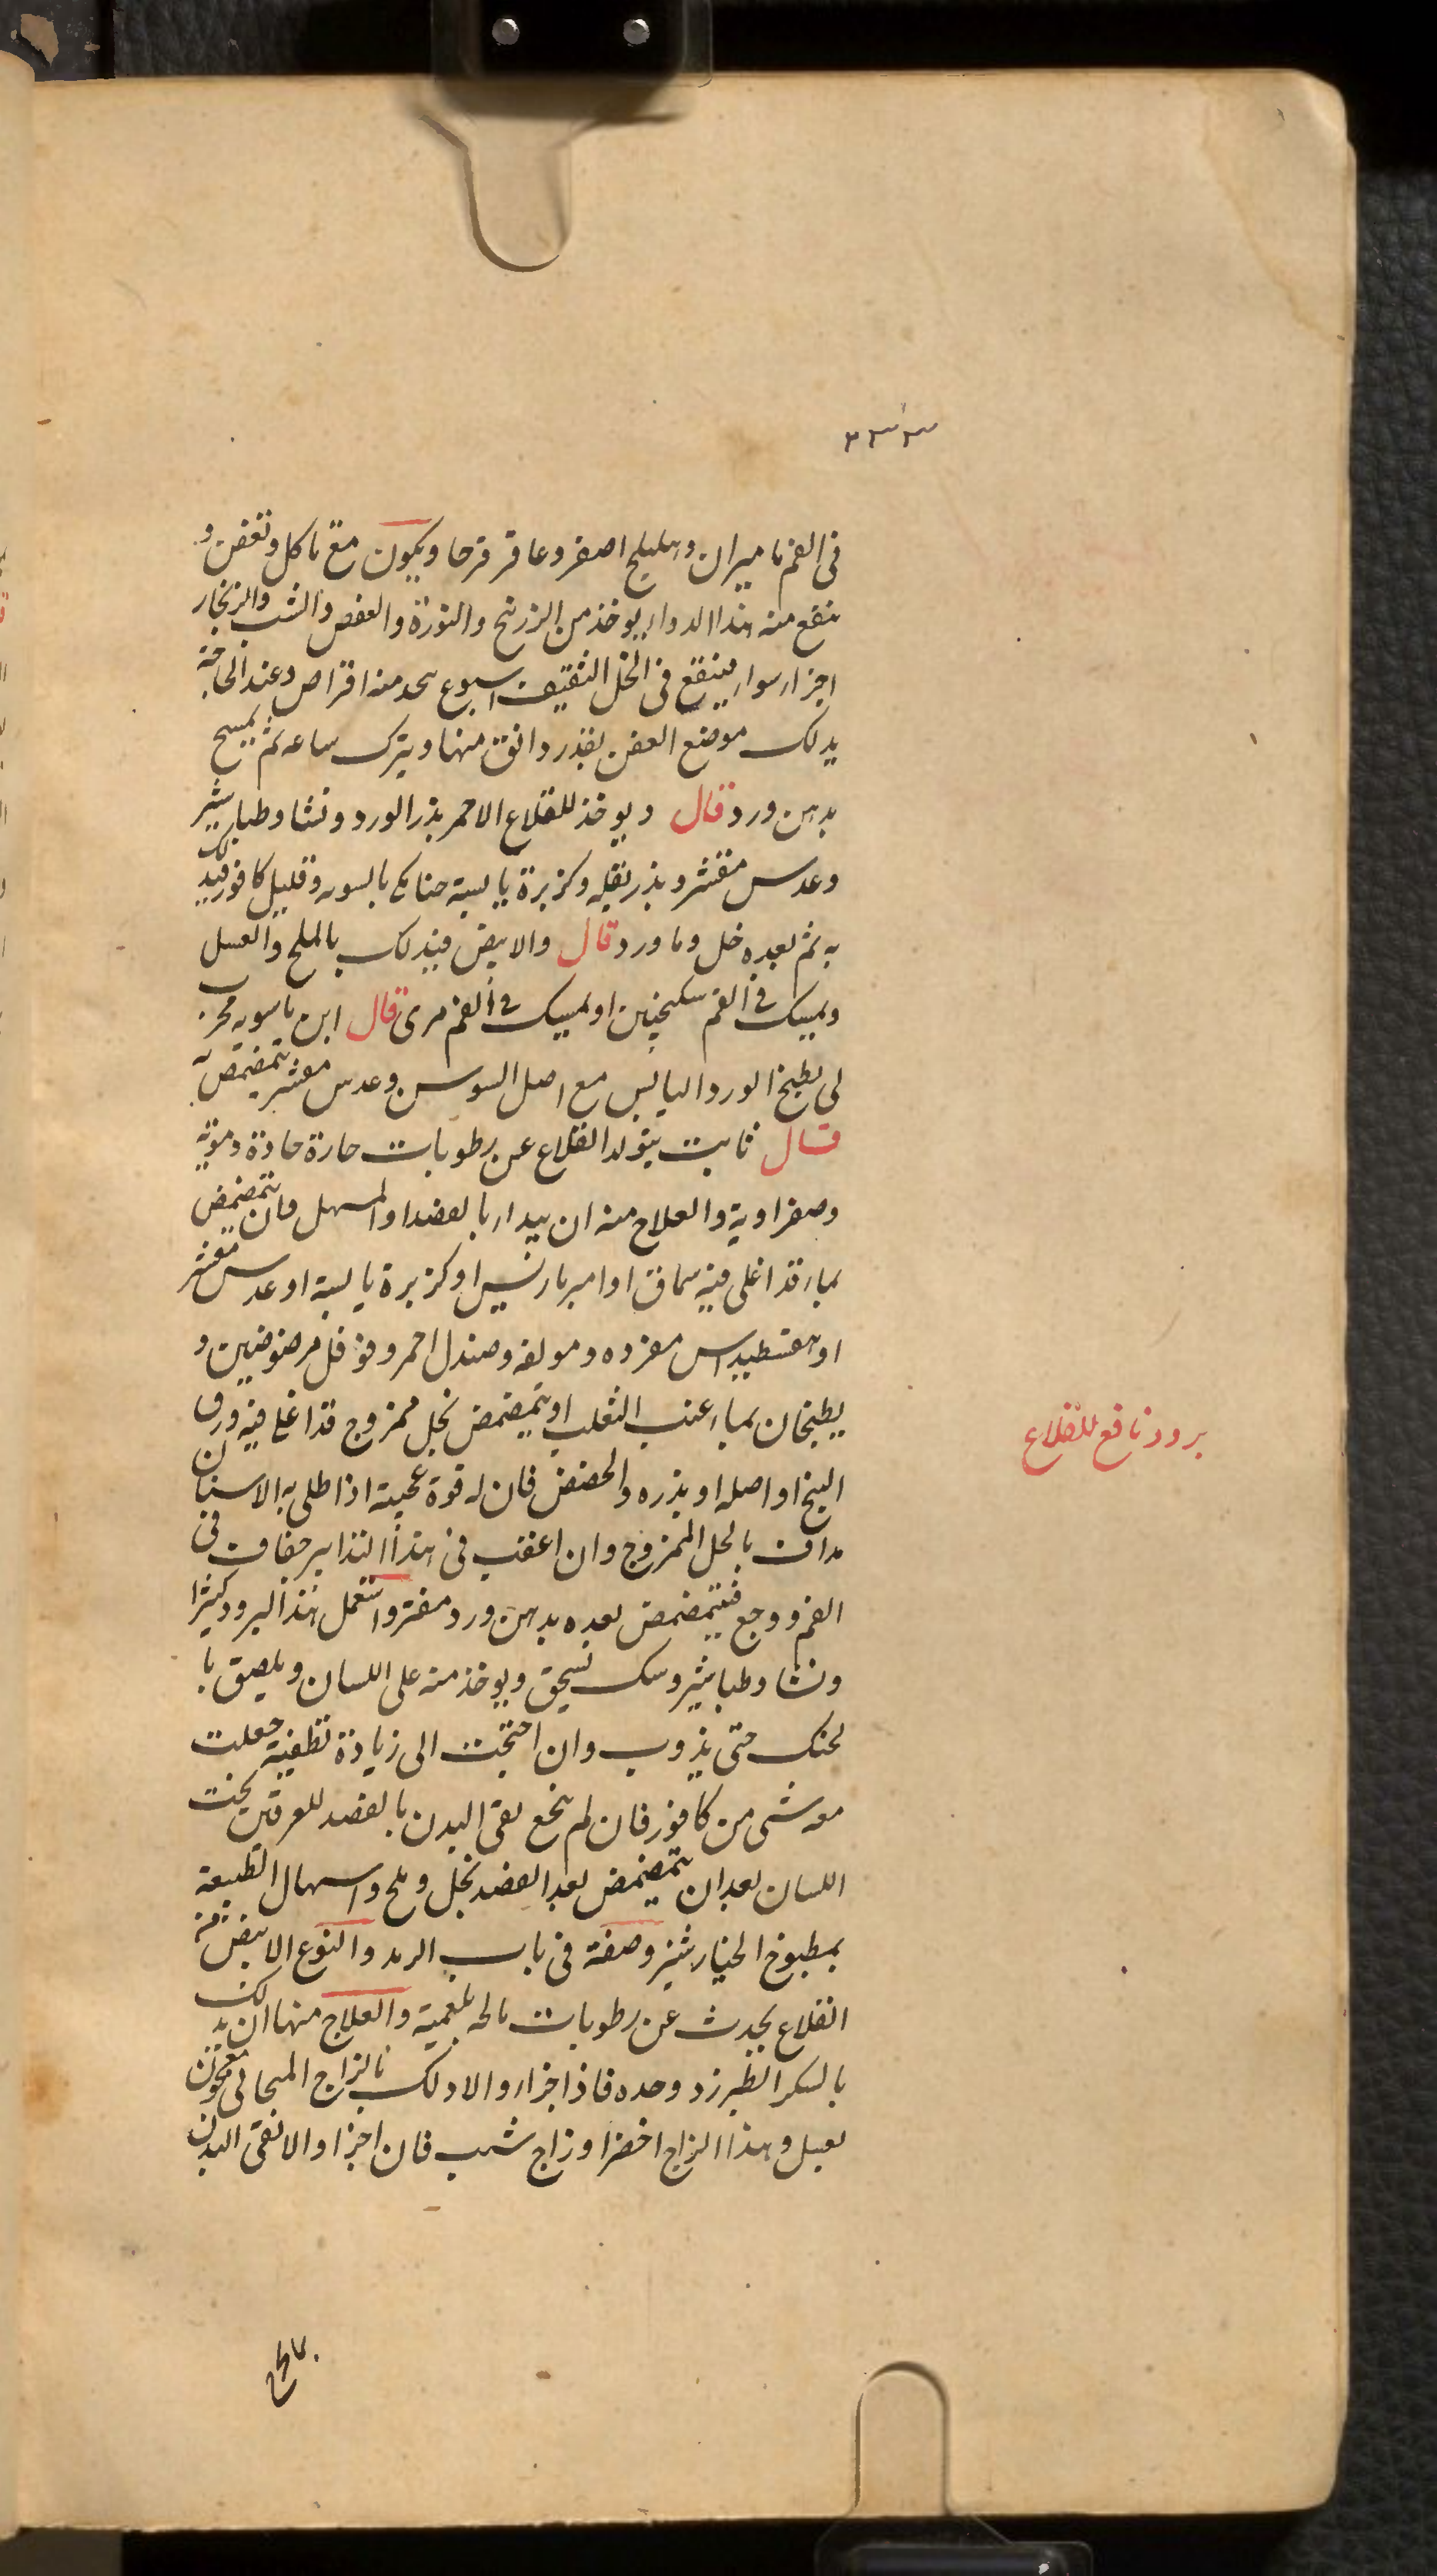 ٣٣٣
فى الفم ماميران وهليلج اصفر وعاقر قرحا ويكون مع تاكل وتعفن و
ينفع منه هذا الدواء يوخذ من الزرنيخ والنورة والعفص والشب والزنجار
اجزاء سواء فينقع فى الخل الثقيف اسبوع منه اقراص وعند الحاجة
يدلك موضع العفن بقدر دانق منها ويترك ساعه ثم يمسح
بدهن ورد قال ويوخذ للقلاع الاحمر بذر الورد ونشا وطباشير
وعدس مقشر وبذر بقله وكزبرة يابسة بالسويه وقليل كافور فيدلك
به ثم بعده خل وماورد قال والابيض فيدلك بالملح والعسل
ويمسك فى الفم سكنجبين او يمسك فى الفم مرى قال ابن ماسويه مجرب
لى يطبخ الورد اليابس مع اصل السوسن وعدس مقشر يتمضمض به
قال ثابت يتولد القلاع عن رطوبات حارة حادة دموية
وصفراوية والعلاج منه ان يبداء بالفصد او المسهل وان يتمضمض
بماء قد اغلى فيه سماق او امبرباريس او كزبرة يابسة او عدس مقشر
او هفسطيداس مفرده ومولفه وصندل احمر وفوفل مرضوضين و
يطبخان بماء عنب الثعلب او يتمضمض بخل ممزوج قد اغلى فيه ورق
البنج او اصله او بذره والحضض فان له قوة عجيبة اذا طلى به الاسنان
مداف بالخل الممزوج وان اعقب فى هذا التدابير جفاف فى
الفم ووجع فيتمضمض بعده بدهن ورد مفتر واستعمل هذا البرود كثيرا
ونشا وطباشير وسك يسحق ويوخذ منه على اللسان ويلصق با
لحنك حتى يذوب وان احتجت الى زيادة تطفية جعلت
معه شى من كافور فان لم ينجع نقى البدن بالفصد للعرقين تحت
اللسان بعد ان يتمضمض بعد الفصد بخل وملح واسهال الطبيعة
بمطبوخ الخيارشنبر وصفته فى باب الرمد والنوع الابيض من
القلاع يحدث عن رطوبات مالحه بلغمية والعلاج منها ان يدلك
بالسكر الطبرزد وحده فاذا اجزاء والا دلك بالزاج معجون
بعسل وهذا الزاج اخضر او زاج شب فان اجزا والا نقى البدن
برود نافع للقلاع